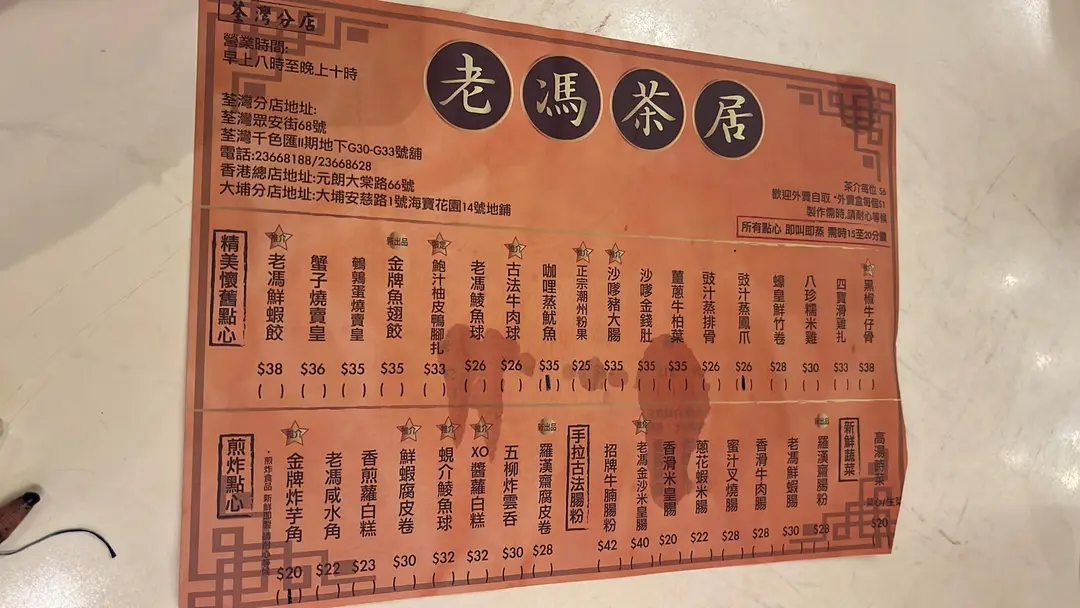 荃灣分店
營業時間:
早上八時至晚上十時
荃灣分店地址:
荃灣眾安街68號
荃灣千色匯II期地下G30-G33號舖
電話:23668188/23668628
香港總店地址:元朗大棠路66號
大埔分店地址:大埔安慈路1號海寶花園14號地鋪
老馮茶居
茶介每位 $6
歡迎外賣自取 *外賣盒每個$1
製作需時,請耐心等候
所有點心 即叫即蒸 需時15至20分鐘
精美懷舊點心
推介 老馮鮮蝦餃 $38 ( )
蟹子燒賣皇 $36 ( )
鵪鶉蛋燒賣皇 $35 ( )
新出品 金牌魚翅餃 $35 ( )
鮑汁柚皮鴨腳扎 $33 ( )
老馮鯪魚球 $26 ( )
推介 古法牛肉球 $26 ( )
咖哩蒸魷魚 $35 ( )
推介 正宗潮州粉果 $25 ( )
推介 沙嗲豬大腸 $35 ( )
沙嗲金錢肚 $35 ( )
薑蔥牛柏葉 $35 ( )
豉汁蒸排骨 $26 ( )
豉汁蒸鳳爪 $26 ( )
蠔皇鮮竹卷 $28 ( )
八珍糯米雞 $30 ( )
四寶滑雞扎 $33 ( )
推介 黑椒牛仔骨 $38 ( )
煎炸點心
推介 金牌炸芋角 $20 ( )
老馮咸水角 $22 ( )
香煎蘿白糕 $23 ( )
推介 鮮蝦腐皮卷 $30 ( )
推介 蜆介鯪魚球 $32 ( )
推介 XO醬蘿白糕 $32 ( )
五柳炸雲吞 $30 ( )
新出品 羅漢齋腐皮卷 $28 ( )
手拉古法腸粉
招牌牛腩腸粉 $42 ( )
推介 老馮金沙米皇腸 $40 ( )
香滑米皇腸 $20 ( )
蔥花蝦米腸 $22 ( )
蜜汁叉燒腸 $28 ( )
香滑牛肉腸 $28 ( )
老馮鮮蝦腸 $30 ( )
新出品 羅漢齋腸粉 $28 ( )
新鮮蔬菜
高湯時菜
$20